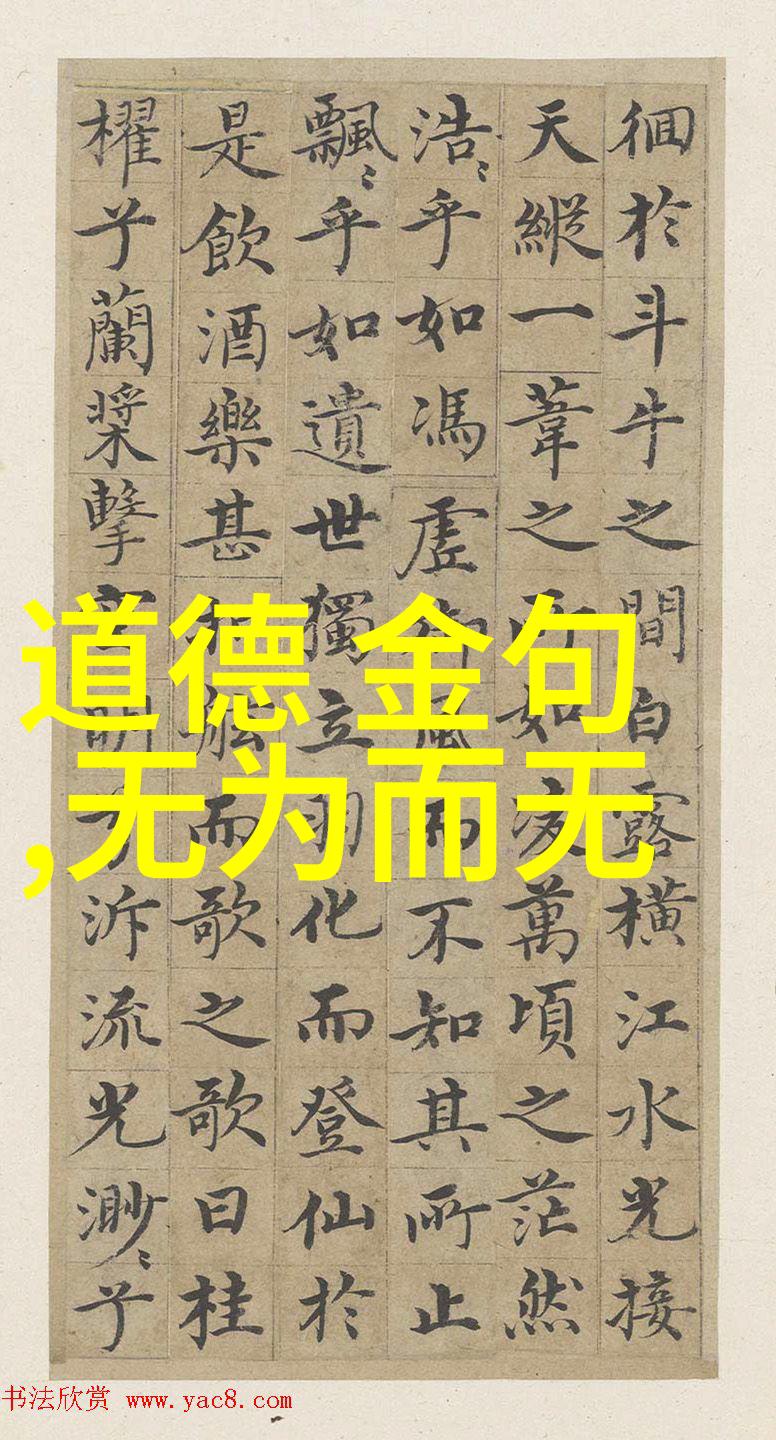 徊於斗牛之間白露橫江水光接
天縱一葦之所如凌萬頃之茫然
浩〻乎如馮虛御風而不知其所止
飄〻乎如遺世獨立羽化而登仙於
是飲酒樂甚扣舷而歌之歌曰桂
櫂兮蘭槳擊空明兮泝流光渺〻兮
道德 金句
,无为而无
书法欣赏 www.yac8.com